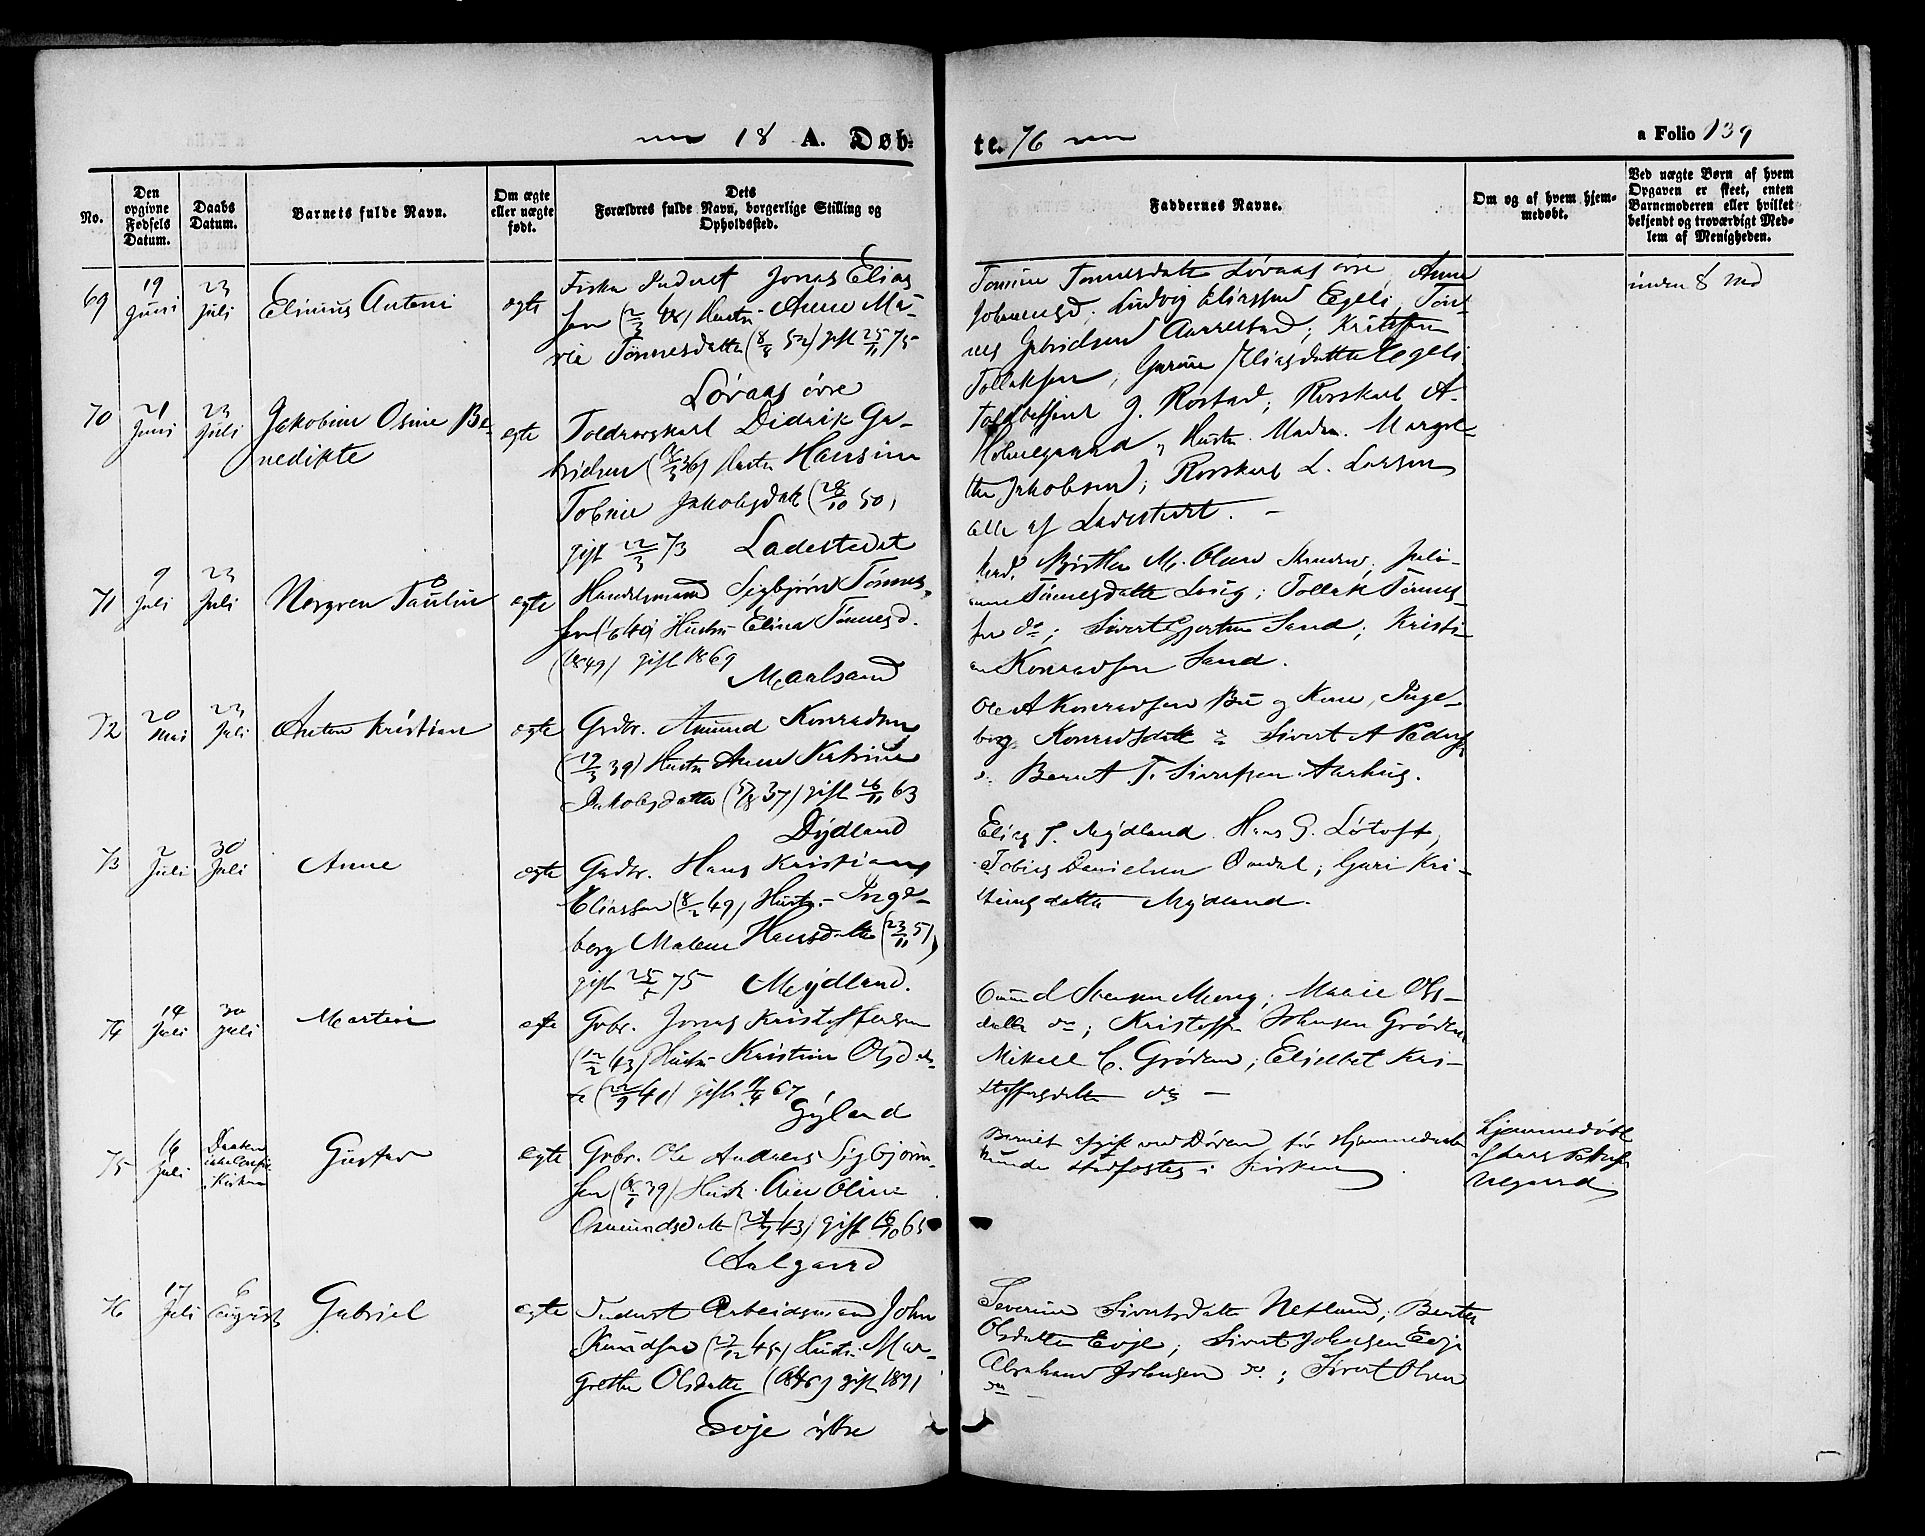 18 A. Døb=
te. 76
a Folio 139
No.
Den opgivne Fødsels Datum.
Daabs Datum.
Barnets fulde Navn.
Om ægte eller uægte født.
Dets Forældres fulde Navn, borgerlige Stilling og Opholdssted.
Faddernes Navne.
Om og af hvem hjemmedøbt.
Ved uægte Børn af hvem Opgaven er skeet, enten Barnemoderen eller hvilket bekjendt og troværdigt Medlem af Menigheden.
69
19 Juni
23 Juli
Elinius Antoni
egte
Fisker Inderst Jonas Elias
sen (2/3 48) Hustr. Anne Ma-
rie Tønnesdatter (8/8 52) gift 25/11 75
Løvaas øvre
Tomine Tønnesdatter Løvaas øvre, Anne
Johannesd; Ludvig Eliassen Egeli, Tøn-
nes Gabrielsen Aarrestad; Kristen
Tollaksen, Gurine Eliasdatter Egeli
inden 8 Md
70
21 Juni
23 Juli
Jakobine Osine Be-
nedikte
egte
Toldrorskarl Didrik Ga-
brielsen (36) Hustr. Hansine
Tobine Jakobsdatt (28/10 50)
gift 22/3 73 Ladestedet
J. Rostad; Rorskarl A.
Holmegaard, Hustr. Madm. Margre-
the Jakobsen; Rorskarl L. Larsen
alle af Ladestedet. –
71
9 Juli
23 Juli
Norgren Paulin
egte
Handelsmand Sigbjørn Tønnes-
sen (1840) Hustr. Elina Tønnesd.
(1849) gift 1869
Maalsand
M. Olsen; Juli-
anne Tønnesdatter Løvig; Tollak Tønnes-
sen do; Sivert Gjertsen Sand; Kristi-
an Konradsen Sand.
72
20 Mai
23 Juli
Anton Kristian
egte
Grdbr. Amund Konradsen
(17/3 39) Hustr. Anne Katrine
Jakobsdatter (5/8 37) gift 26/11 63
Dydland
Ole A Konradsen Bu og Kone, Inge-
borg Konradsdatt – Sivert A Peders
Berent T. Sivertsen Aarhus.
73
2 Juli
30 Juli
Anne
egte
Grdbr. Hans Kristian
Eliassen (8/2 49) Hustr. Inge-
borg Malene Hansdatter (23/11 51)
gift 25/5 75 Mydland.
Elias J. Mydland Hans G. Løtoft,
Tobias Danielsen Omdal; Guri Kri-
stensdatter Mydland.
74
14 Juli
30 Juli
Martin
egte
Gbr. Jonas Kristoffersen
(12/2 43) Hustr. Kristine Olsdat-
te (22/9 40) gift 9/4 67
Gyland
Svensen Moerg; Marie Ols-
datter do; Kristoffer Johnsen Grøden
Mikael C. Grøden; Elisebet Kri-
stoffersdatter do –
75
16 Juli
Gustav
egte
Gbr. Ole Andreas Sigbjørn-
sen (18/1 39) Hustr. Ane Oline
Osmundsdatt (24/7 43) gift 16/10 65
Aalgaard
Barnet afgik ved Døden før Hjemmedaaben
kunde stadfæstes i Kirken
hjemmedøbt
af Lars
Aalgaard
76
17 Juli
6 August
Gabriel
egte
Inderst Arbeidsmand John
Knudsen (27/12 45) Hustr. Mar-
grethe Olsdatter (1846) gift 1871
Eoje ytre
Severine Sivertsdatter Netland; Berthe
Olsdatter Eoje; Sivert Johnsen Eoje
Abraham Johnsen do; Sivert Olsen
do –